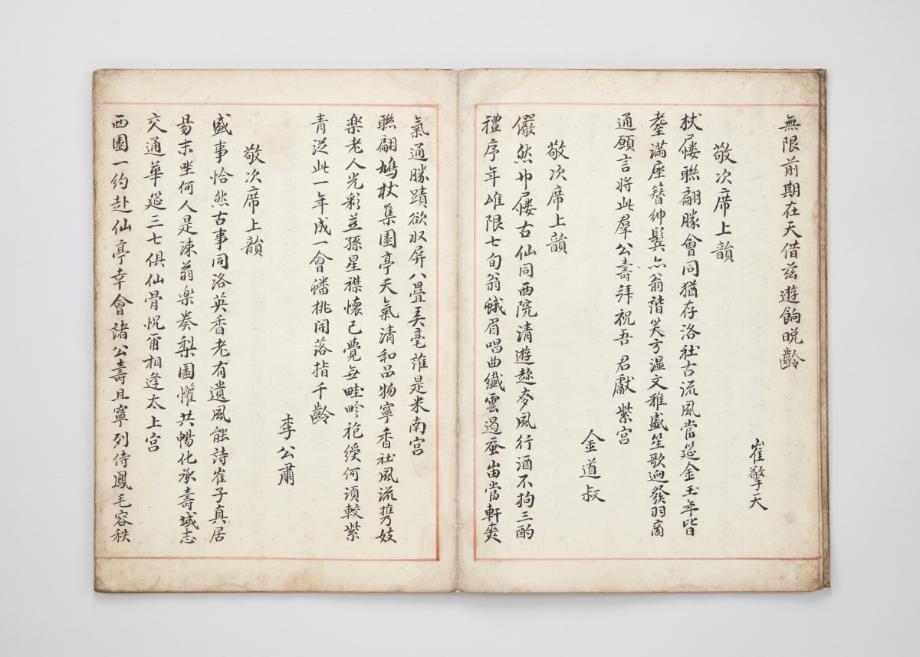 無限前期在天借茲遊餉晩齡
崔擎天
敬次席上韻
杖屨聯翩勝會同猶存洛社古流風當筵金玉年皆
耋滿座簪紳鬓亦翁諧笑方溫文雅盛笙歌迎發羽商
通願言將此羣公壽拜祝吾君獻紫宮
金道叔
敬次席上韻
儼然巾屨古仙同西院清遊趂麥風行酒不拘三酌
禮序年雄限七旬翁蛾眉唱曲纖雲過蚕當軒爽
氣通勝蹟欲收屏八疊美毫誰是米南宮
聯翩鳩杖集園亭天氣清和品物寧香社風流携妓
樂老人光彩並孫星襟懷已覺無畦畛袍綬何須較紫
青從此一年成一會蟠桃開落指千齡
李公肅
敬次席上韻
盛事恰然古事同洛英香老有遺風能詩崔子真居
易末坐何人是涑翁樂奏梨園懽共暢化承壽域志
交通華筵三七俱仙骨怳有相逢太上宮
西園一約赴仙亭幸會諸公壽且寧列侍鳳毛容秩